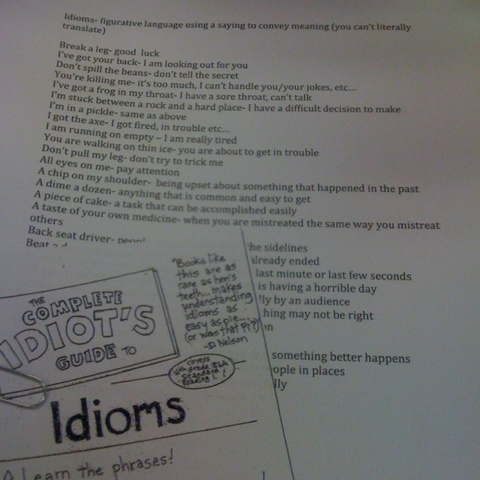 Idioms- figurative language using a saying to convey meaning (you can't literally
translate)
Break a leg- good luck
I've got your back- I am looking out for you
Don't spill the beans- don't tell the secret
You're killing me- it's too much, I can't handle you/your jokes, etc...
I've got a frog in my throat- I have a sore throat, can't talk
I'm stuck between a rock and a hard place- I have a difficult decision to make
I'm in a pickle- same as above
I got the axe- I got fired, in trouble etc...
I am running on empty – I am really tired
You are walking on thin ice- you are about to get in trouble
Don't pull my leg- don't try to trick me
All eyes on me- pay attention
A chip on my shoulder- being upset about something that happened in the past
A dime a dozen- anything that is common and easy to get
A piece of cake- a task that can be accomplished easily
A taste of your own medicine- when you are mistreated the same way you mistreat
others
Back seat driver- he sidelines
already ended
last minute or last few seconds
is having a horrible day
lly by an audience
hing may not be right
on
something better happens
ople in places
lly
THE
COMPLETE
IDIOT'S
GUIDE TO
"Books like
this are as
rare as hen's
teeth... makes
understanding
idioms as
easy as pie...
(or was that Pi?)"
-D Nelson
covers
6th grade ELA
Standard
Reading 1.
Idioms
Learn the phrases!